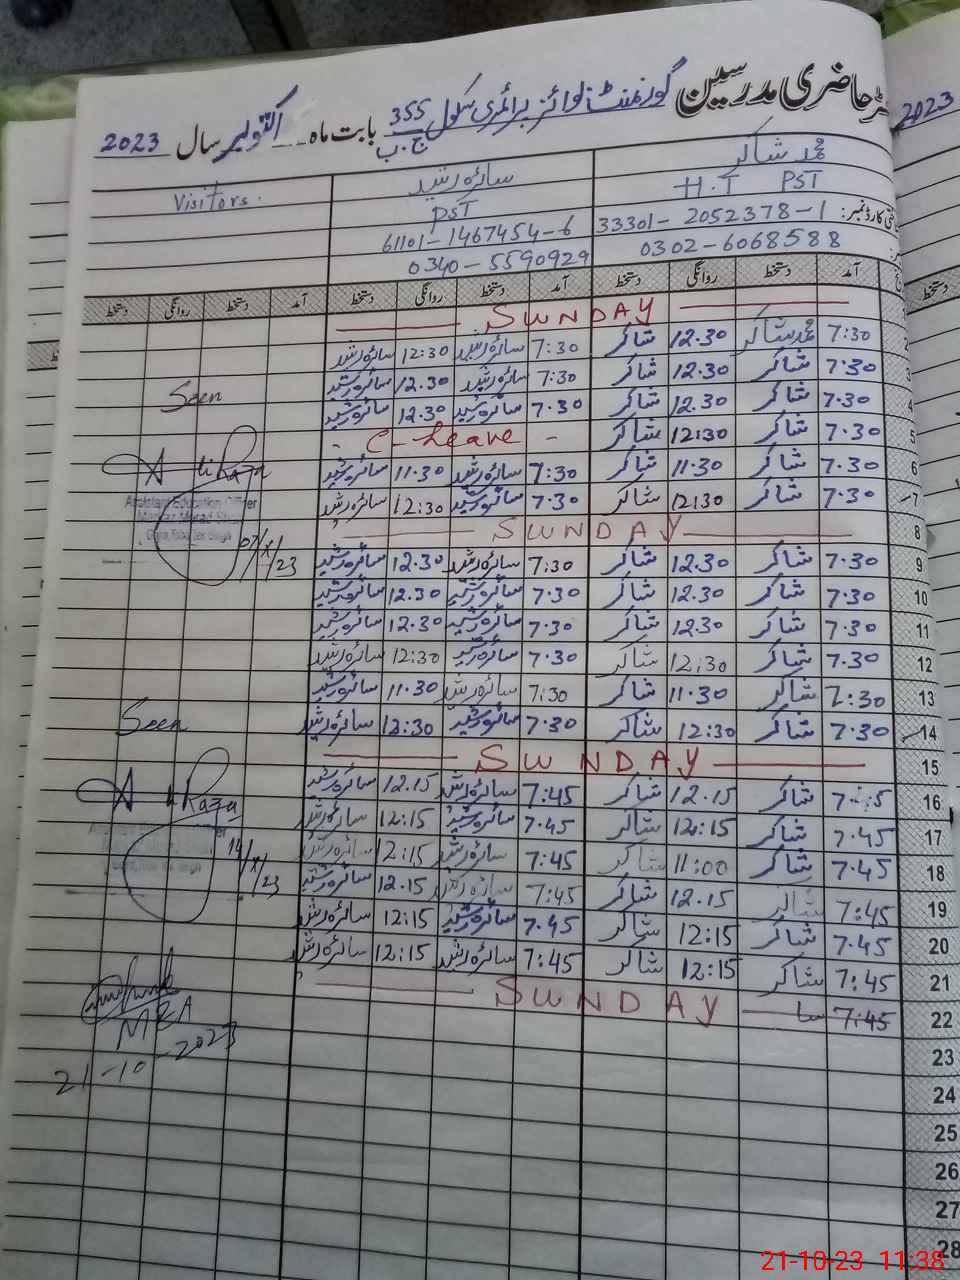 رجسٹر حاضری مدرسین گورنمنٹ بوائز پرائمری سکول 355 ج.ب بابت ماہ اکتوبر سال 2023
2023
محمد شاکر سائرہ رشید Visitors.
H.T PST PST
شناختی کارڈ نمبر: 33301-2052378-1 61101-1467454-6
0302-6068588 0340-5590929
آمد دستخط روانگی دستخط آمد دستخط روانگی دستخط آمد دستخط روانگی دستخط
دستخط
SUNDAY
2 7:30 محمد شاکر 12.30 شاکر 7:30 سائرہ رشید 12:30 سائرہ رشید
3 7.30 شاکر 12.30 شاکر 7:30 سائرہ رشید 12.30 سائرہ رشید
Seen
4 7.30 شاکر 12.30 شاکر 7.30 سائرہ رشید 12.30 سائرہ رشید
5 7.30 شاکر 12:30 شاکر - C-Leave -
6 7.30 شاکر 11.30 شاکر 7:30 سائرہ رشید 11.30 سائرہ رشید
7 7.30 شاکر 12:30 شاکر 7.30 سائرہ رشید 12:30 سائرہ رشید
Assistant Education Officer
8 SUNDAY
07/X/23
9 7.30 شاکر 12.30 شاکر 7:30 سائرہ رشید 12.30 سائرہ رشید
10 7.30 شاکر 12.30 شاکر 7.30 سائرہ رشید 12.30 سائرہ رشید
11 7.30 شاکر 12.30 شاکر 7:30 سائرہ رشید 12.30 سائرہ رشید
12 7.30 شاکر 12:30 شاکر 7.30 سائرہ رشید 12:30 سائرہ رشید
13 7:30 شاکر 11.30 شاکر 7:30 سائرہ رشید 11.30 سائرہ رشید
14 7.30 شاکر 12:30 شاکر 7.30 سائرہ رشید 12:30 سائرہ رشید
Seen
15 SUNDAY
16 شاکر 12.15 شاکر 7:45 سائرہ رشید 12.15 سائرہ رشید
17 7.45 شاکر 12:15 شاکر 7.45 سائرہ رشید 12:15 سائرہ رشید
18 7.45 شاکر 11:00 شاکر 7:45 سائرہ رشید 12:15 سائرہ رشید
14/X/23
19 7:45 شاکر 12.15 شاکر 7:45 سائرہ رشید 12.15 سائرہ رشید
20 7.45 شاکر 12:15 شاکر 7.45 سائرہ رشید 12:15 سائرہ رشید
21 7:45 شاکر 12:15 شاکر 7:45 سائرہ رشید 12:15 سائرہ رشید
22 7:45 SUNDAY
MEA
21-10-2023
23
24
25
26
27
28
21-10-23 11:38